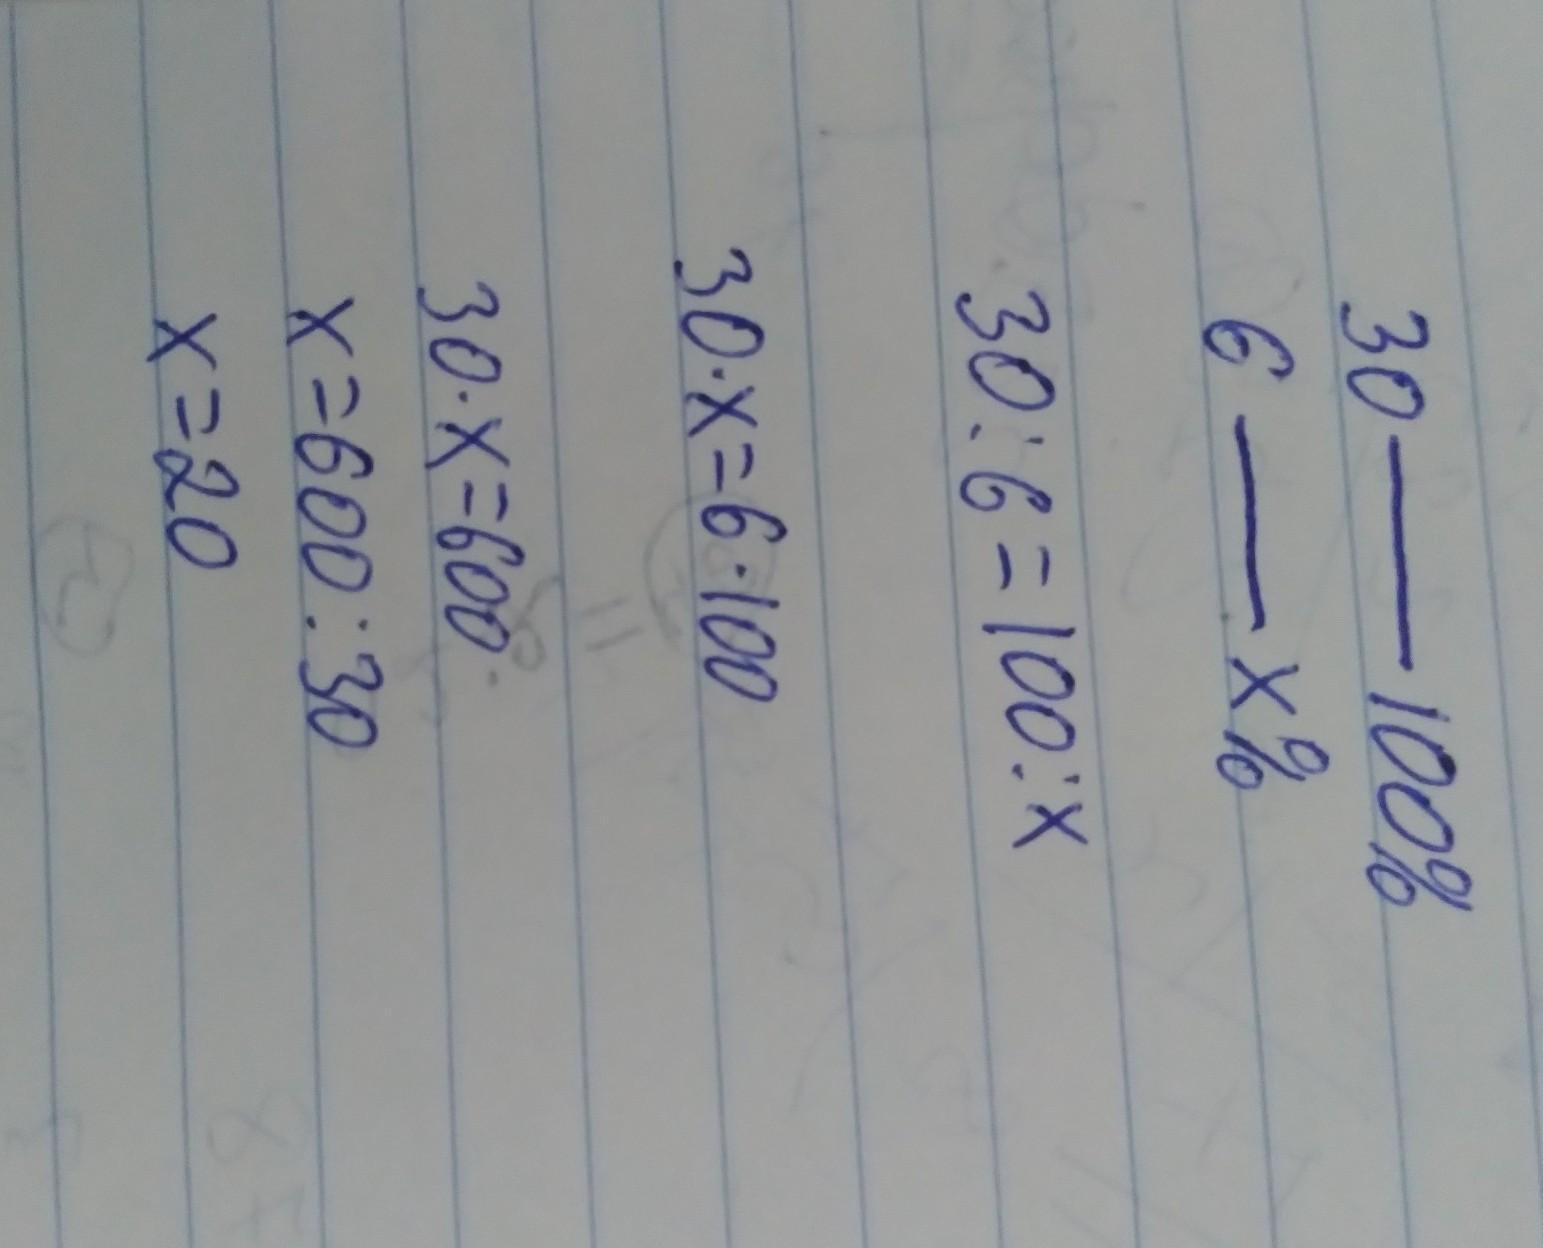 30 — 100%
6 — x%
30 : 6 = 100 : x
30 · x = 6 · 100
30 · x = 600
x = 600 : 30
x = 20